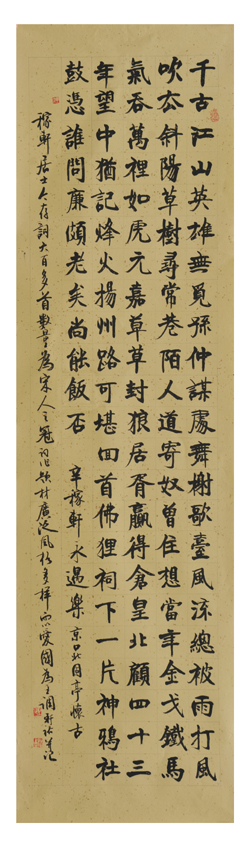 千古江山英雄無覓孫仲謀處舞榭歌臺風流總被雨打風
吹去斜陽草樹尋常巷陌人道寄奴曾住想當年金戈鐵馬
氣吞萬裡如虎元嘉草草封狼居胥贏得倉皇北顧四十三
年望中猶記烽火揚州路可堪回首佛狸祠下一片神鴉社
鼓憑誰問廉頗老矣尚能飯否 辛稼軒永遇樂京口北固亭懷古
稼軒居士今存詞六百多首數量為宋人之冠題材廣泛風格多樣以愛國為主調